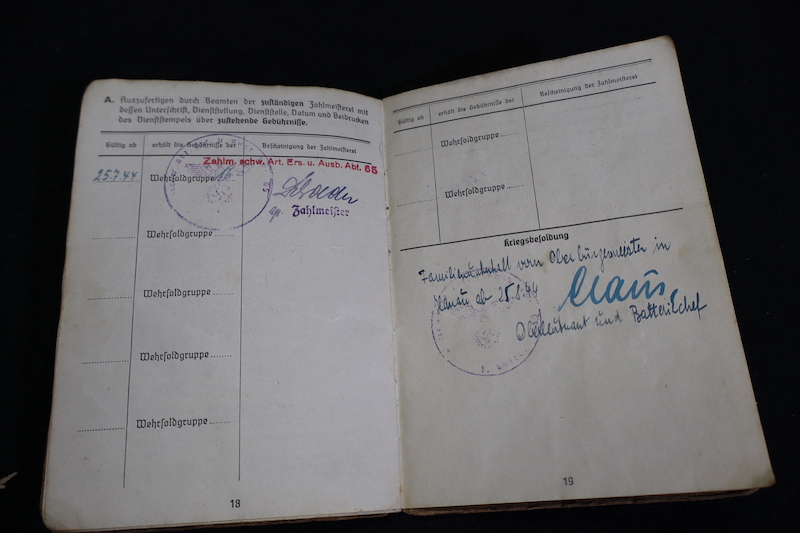 A. Auszufertigen durch Beamten der zuständigen Zahlmeisterei mit
dessen Unterschrift, Dienststellung, Dienststelle, Datum und Beidrucken
des Dienststempels über zustehende Gebührnisse.
Gültig ab
erhält die Gebührnisse der
Bescheinigung der Zahlmeisterei
Zahlm. schw. Art. Ers. u. Ausb. Abt. 65
25.7.44
Wehrsoldgruppe 16
Zahlmeister
Wehrsoldgruppe
Wehrsoldgruppe
Wehrsoldgruppe
Wehrsoldgruppe
18
Gültig ab
erhält die Gebührnisse der
Bescheinigung der Zahlmeisterei
Wehrsoldgruppe
Wehrsoldgruppe
Kriegsbesoldung
Familienunterhalt vom Oberbürgermeister in
Hanau ab 25.8.44
Oberleutnant und Batteriechef
19